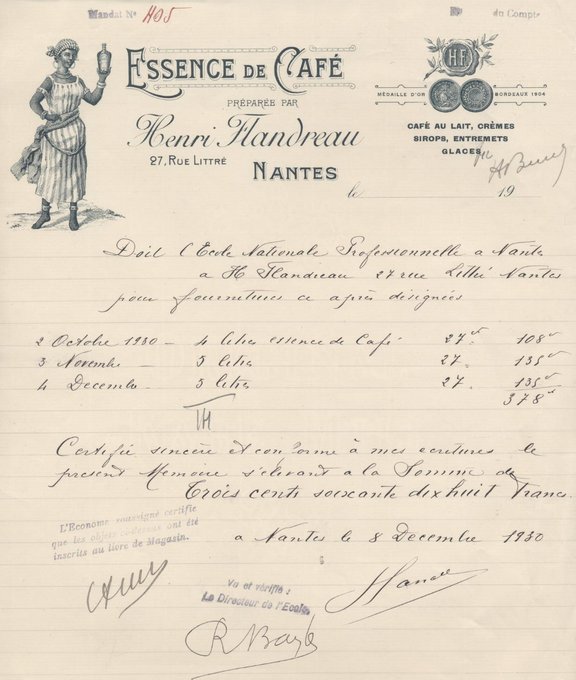 Mandat N° 405
N° du Compte
ESSENCE DE CAFÉ
PRÉPARÉE PAR
Henri Flandreau
27, RUE LITTRÉ
NANTES
H.F.
MÉDAILLE D'OR BORDEAUX 1904
CAFÉ AU LAIT, CRÈMES
SIROPS, ENTREMETS
GLACES
le 19
Doit l'Ecole Nationale Professionnelle a Nantes
a H. Flandreau 27 rue Littré Nantes
pour fournitures ci après désignées
2 Octobre 1930 — 4 litres essence de Café 27 f 108 f
3 Novembre — 5 litres 27. 135 f
4 Decembre — 5 litres 27. 135 f
378 f
Certifié sincère et conforme à mes ecritures le
present Memoire s'elevant a la Somme de
Trois cents soixante dix huit francs
L'Econome soussigné certifie
que les objets ci-dessus ont été
inscrits au livre de Magasin.
a Nantes le 8 Decembre 1930
Vu et vérifié :
Le Directeur de l'Ecole,